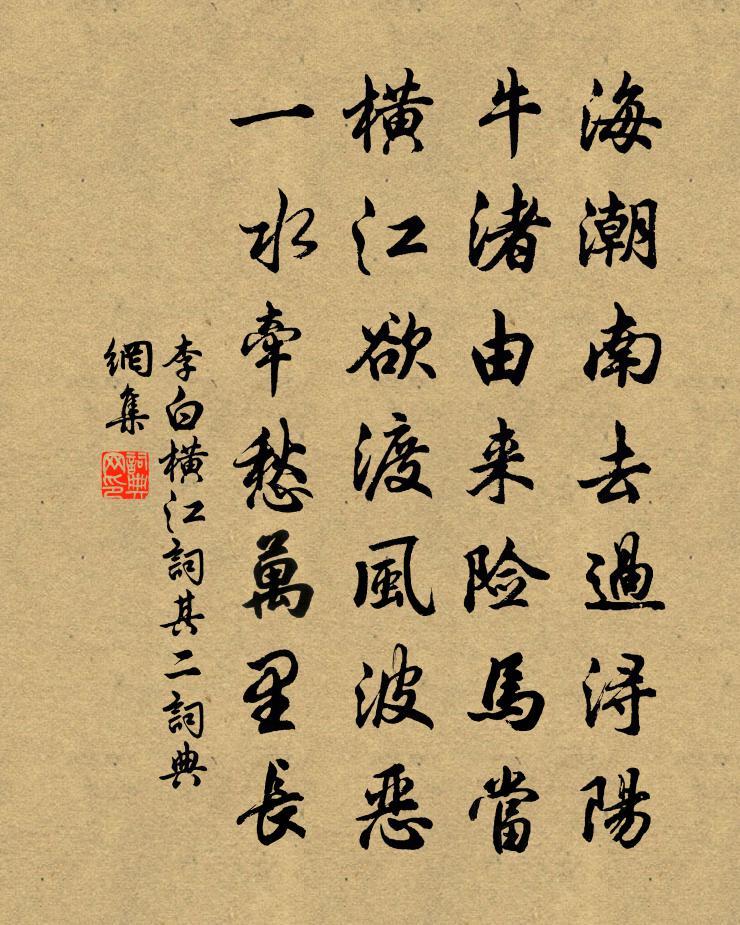 海潮南去過潯陽
牛渚由来险馬當
橫江欲渡風波恶
一水牽愁萬里長
李白橫江詞其二詞典
網集
詞典
网印